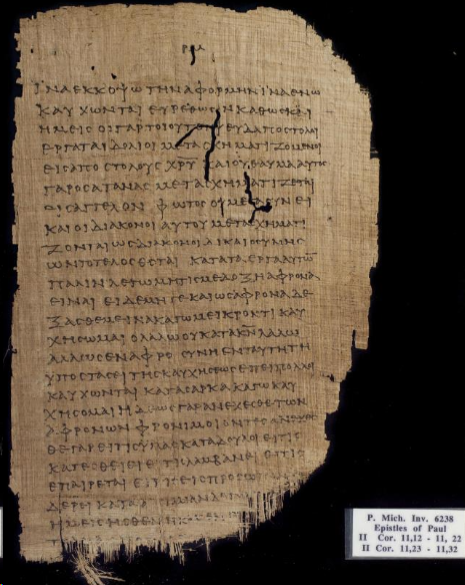 ΙΝΑ ΕΚΚΟΨΩ ΤΗΝ ΑΦΟΡΜΗΝ ΙΝΑ ΕΝ Ω
ΚΑΥΧΩΝΤΑΙ ΕΥΡΕΘΩϹΙΝ ΚΑΘΩϹ ΚΑΙ
ΗΜΕΙϹ ΟΙ ΓΑΡ ΤΟΙΟΥΤΟΙ ΨΕΥΔΑΠΟϹΤΟΛΟΙ
ΕΡΓΑΤΑΙ ΔΟΛΙΟΙ ΜΕΤΑϹΧΗΜΑΤΙΖΟΜΕΝΟΙ
ΕΙϹ ΑΠΟϹΤΟΛΟΥϹ ΧΡΥ ΚΑΙ ΟΥ ΘΑΥΜΑ ΑΥΤΟϹ
ΓΑΡ Ο ϹΑΤΑΝΑϹ ΜΕΤΑϹΧΗΜΑΤΙΖΕΤΑΙ
ΕΙϹ ΑΓΓΕΛΟΝ ΦΩΤΟϹ ΟΥ ΜΕΓΑ ΟΥΝ ΕΙ
ΚΑΙ ΟΙ ΔΙΑΚΟΝΟΙ ΑΥΤΟΥ ΜΕΤΑϹΧΗΜΑΤΙ
ΖΟΝΤΑΙ ΩϹ ΔΙΑΚΟΝΟΙ ΔΙΚΑΙΟϹΥΝΗϹ
ΩΝ ΤΟ ΤΕΛΟϹ ΕϹΤΑΙ ΚΑΤΑ ΤΑ ΕΡΓΑ ΑΥΤΩ̅
ΠΑΛΙΝ ΛΕΓΩ ΜΗ ΤΙϹ ΜΕ ΔΟΞΗ ΑΦΡΟΝΑ
ΕΙΝΑΙ ΕΙ ΔΕ ΜΗ ΓΕ ΚΑΙ ΩϹ ΑΦΡΟΝΑ ΔΕ
ΞΑϹΘΕ ΜΕ ΙΝΑ ΚΑΓΩ ΜΕΙΚΡΟΝ ΤΙ ΚΑΥ
ΧΗϹΩΜΑΙ Ο ΛΑΛΩ ΟΥ ΚΑΤΑ Κ̅Ν̅ ΛΑΛΩ
ΑΛΛ ΩϹ ΕΝ ΑΦΡΟϹΥΝΗ ΕΝ ΤΑΥΤΗ ΤΗ
ΥΠΟϹΤΑϹΕΙ ΤΗϹ ΚΑΥΧΗϹΕΩϹ ΕΠΕΙ ΠΟΛΛΟΙ
ΚΑΥΧΩΝΤΑΙ ΚΑΤΑ ϹΑΡΚΑ ΚΑΓΩ ΚΑΥ
ΧΗϹΟΜΑΙ ΗΔΕΩϹ ΓΑΡ ΑΝΕΧΕϹΘΕ ΤΩΝ
ΑΦΡΟΝΩΝ ΦΡΟΝΙΜΟΙ ΟΝΤΕϹ ΑΝΕΧΕϹ
ΘΕ ΓΑΡ ΕΙ ΤΙϹ ΥΜΑϹ ΚΑΤΑΔΟΥΛΟΙ ΕΙ ΤΙϹ
ΚΑΤΕϹΘΕΙΕΙ ΕΙ ΤΙϹ ΛΑΜΒΑΝΕΙ ΕΙ ΤΙϹ
ΕΠΑΙΡΕΤΑΙ ΕΙ ΤΙϹ ΕΙϹ ΠΡΟϹΩΠΟΝ
ΔΕΡΕΙ ΚΑΤΑ
ΗΜΕΙϹ
P. Mich. Inv. 6238
Epistles of Paul
II Cor. 11,12 - 11, 22
II Cor. 11,23 - 11,32